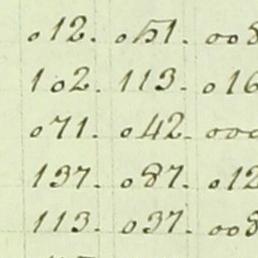 012. 051. 008
102. 113. 016
071. 042. 000
137. 087. 012
113. 037. 008